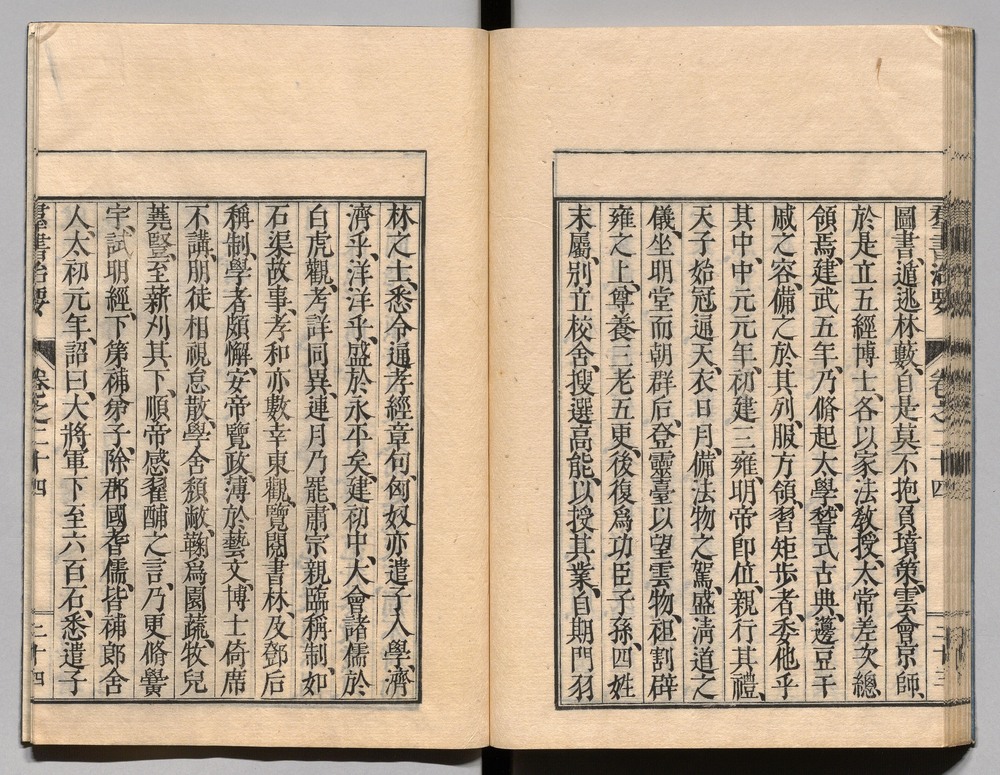 羣書治要 卷之二十四 二十三
圖書、遁逃林藪、自是莫不抱負墳策、雲會京師、
於是立五經博士、各以家法敎授、太常差次總
領焉、建武五年、乃脩起太學、稽式古典、籩豆干
戚之容、備之於其列、服方領、習矩步者、委他乎
其中、中元元年、初建三雍、明帝卽位、親行其禮、
天子始冠通天、衣日月、備法物之駕、盛淸道之
儀、坐明堂而朝群后、登靈臺以望雲物、袒割辟
雍之上、尊養三老五更、後復爲功臣子孫、四姓
末屬、別立校舍、搜選高能、以授其業、自期門羽
林之士、悉令通孝經章句、匈奴亦遣子入學、濟
濟乎、洋洋乎、盛於永平矣、建初中、大會諸儒於
白虎觀、考詳同異、連月乃罷、肅宗親臨稱制、如
石渠故事、孝和亦數幸東觀、覽閱書林、及鄧后
稱制、學者頗懈、安帝覽政、薄於藝文、博士倚席
不講、朋徒相視怠散、學舍頹敝、鞠爲園蔬、牧兒
蕘豎、至薪刈其下、順帝感翟酺之言、乃更脩黌
宇、試明經、下第補弟子、除郡國耆儒、皆補郎舍
人、太初元年、詔曰、大將軍下至六百石、悉遣子
羣書治要 卷之二十四 二十四